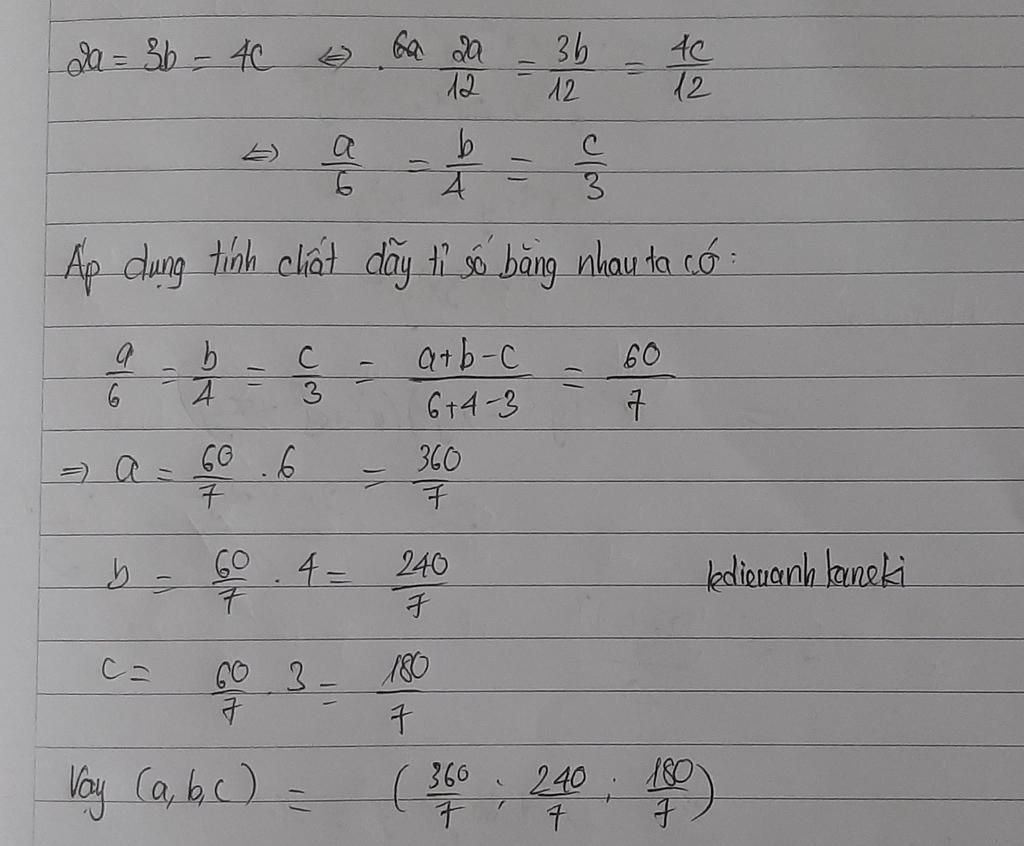 2a = 3b = 4c ⇔ . 6a 2a/12 = 3b/12 = 4c/12
⇔ a/6 = b/4 = c/3
Áp dụng tính chất dãy tỉ số bằng nhau ta có:
a/6 = b/4 = c/3 = a+b-c/6+4-3 = 60/7
⇒ a = 60/7 . 6 = 360/7
b = 60/7 . 4 = 240/7 kdieuanh kaneki
c = 60/7 . 3 = 180/7
Vậy (a,b,c) = (360/7 ; 240/7 ; 180/7)